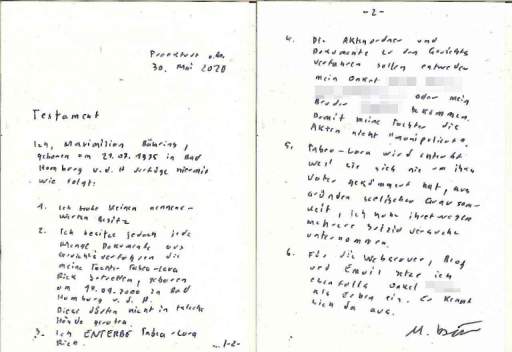 Frankfurt a.M.
30. Mai 2020
Testament
Ich, Maximilian Bähring,
geboren am 21.07.1975 in Bad
Homburg v.d.H verfüge hiermit
wie folgt:
1. Ich habe keinen nennens-
werten Besitz
2. Ich besitze jedoch jede
Menge Dokumente aus
Gerichtsverfahren die
meine Tochter Tabea-Lara
Rick betreffen, geboren
am 14.09.2000 in Bad
Homburg v.d.H.
Diese dürfen nicht in falsche
Hände geraten.
3. Ich ENTERBE Tabea-Lara
Rick.
../-2-
-2-
4. Die Aktenordner und
Dokumente zu den Gerichts
verfahren sollen entweder
mein Onkel
oder mein
Bruder bekommen.
Damit meine Tochter die
Akten nicht "manipuliert".
5. Tabea-Lara wird enterbt
weil sie sich nie um ihren
Vater gekümmert hat, aus
Gründen seelischer Grausam-
keit, ich habe ihretwegen
mehrere Suizidversuche
unternommen.
6. Für die Webserver, Brief
und Email setze ich
ebenfalls Onkel
als Erben ein. Er kennt
sich da aus.